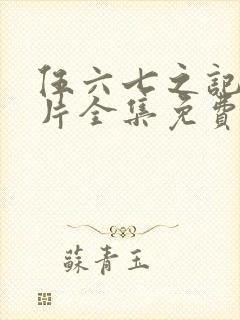 伍六七之記
片全集免費
蘇青玉